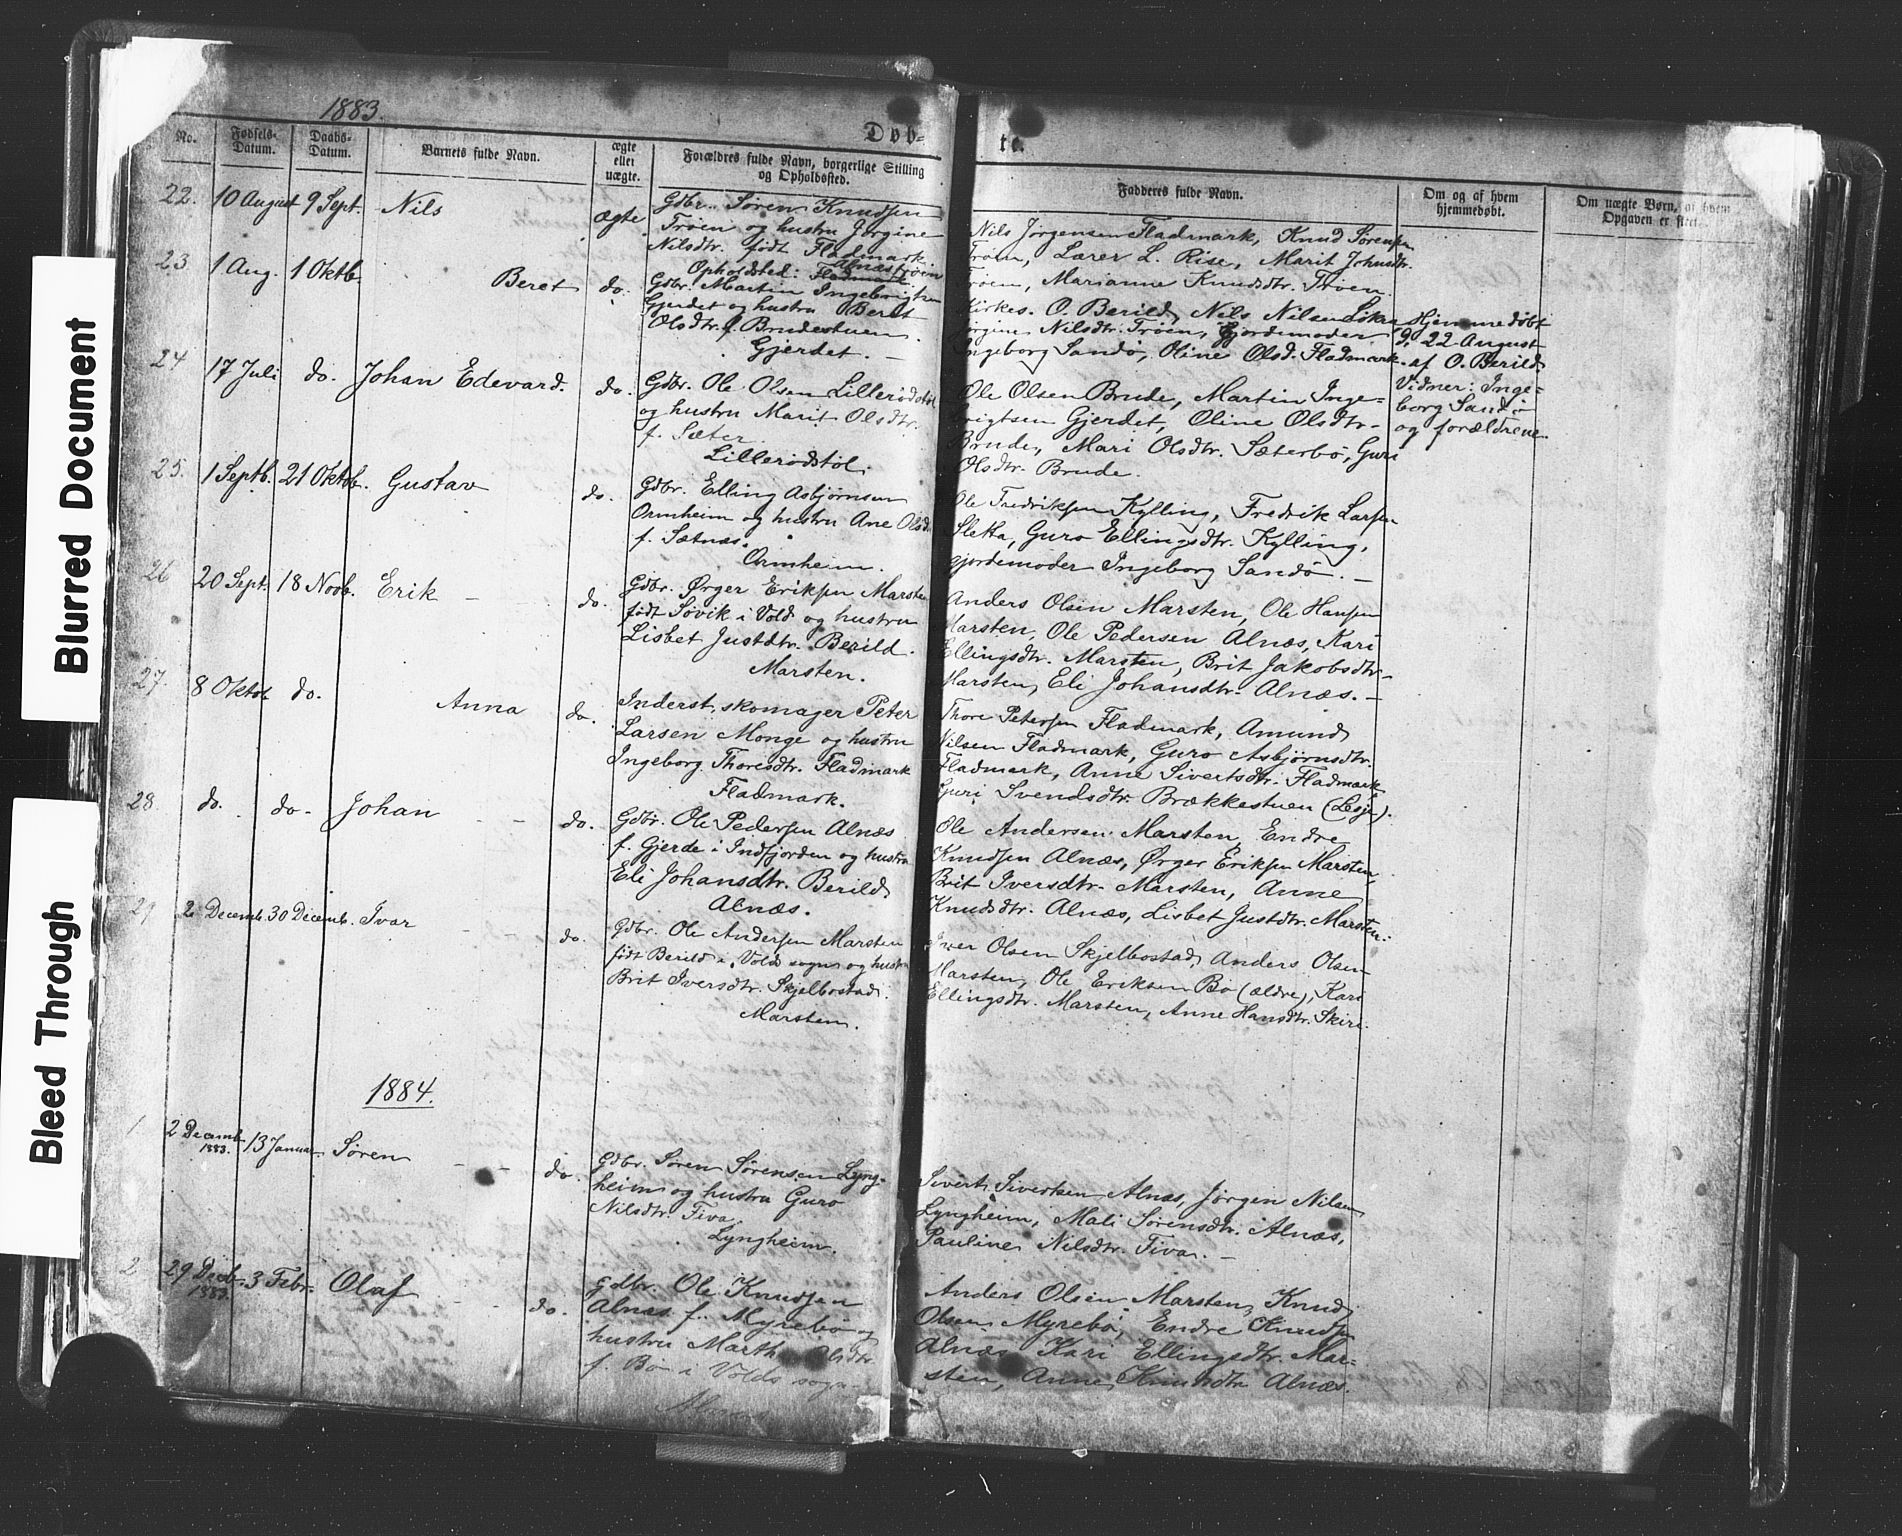 Blurred Document
Bleed Through
1883.
Døb-
te.
No.
Fødsels-
Datum.
Daabs-
Datum.
Barnets fulde Navn.
ægte
eller
uægte.
Forældres fulde Navn, borgerlige Stilling
og Opholdssted.
Fadderes fulde Navn.
Om og af hvem
hjemmedøbt.
Om uægte Børn, af hvem
Opgaven er sket.
22. 10 August 9 Sept. Nils ægte
Gdbr. Søren Knudsen
Trøen og hustru Jørgine
Nilsdtr. født Fladmark
Opholdsted: Fladmark Alnæstrøen
Nils Jørgensen Fladmark, Knud Sørensen
Trøen, Lærer L. Rise, Marit Johnsdtr.
Trøen, Marianne Knudsdtr. Trøen.
23 1 Aug. 1 Oktb. Beret do.
Gdbr. Martin Ingebrigtsen
Gjerdet og hustru Beret
Olsdtr. f. Brudestuen.
Gjerdet. —
Kirkes. O. Berild, Nils Nilsen
Jørgine Nilsdtr. Trøen, Gjordemoder
Ingeborg Sandø, Oline Olsd. Fladmark.
Hjemmedøbt
d. 22 August
af O. Berild
Vidner: Inge-
borg Sandø
og forældrene
24 17 Juli do. Johan Edevard. do.
Gdbr. Ole Olsen Lillerødstøl
og hustru Marit Olsdtr.
f. Sæter.
Lillerødstøl.
Ole Olsen Brude, Martin Inge-
brigtsen Gjerdet, Oline Olsdtr.
Brude, Mari Olsdtr. Sæterbø, Guri
Olsdtr. Brude.
25. 1 Septb. 21 Oktob. Gustav do.
Gdbr. Elling Asbjørnsen
Ormheim og hustru Ane Olsd.
f. Sætnæs.
Ormheim.
Ole Fredriksen Kylling, Fredrik Larsen
Sletta, Guro Ellingsdtr. Kylling,
gjordemoder Ingeborg Sandø. —
26 20 Sept. 18 Novb. Erik do.
Gdbr. Ørger Eriksen Marsten
født Søvik i Vold og hustru
Lisbet Justdtr. Berild.
Marsten.
Anders Olsen Marsten, Ole Hansen
Marsten, Ole Pedersen Alnæs, Kari
Ellingsdtr. Marsten, Brit Jakobsdtr.
Marsten, Eli Johansdtr. Alnæs. —
27. 8 Oktob do. Anna do.
Inderst, skomager Peter
Larsen Monge og hustru
Ingeborg Thoresdtr. Fladmark
Fladmark.
Thore Petersen Fladmark, Amund
Nilsen Fladmark, Guro Asbjørnsdtr.
Fladmark, Anne Sivertsdtr. Fladmark
Guri Svendsdtr. Brækkestuen (Lesje).
28. do. do. Johan do.
Gdbr. Ole Pedersen Alnæs
f. Gjerde i Indfjorden og hustru
Eli Johansdtr. Berild
Alnæs.
Ole Andersen Marsten, Endre
Knudsen Alnæs, Ørger Eriksen Marsten,
Brit Iversdtr. Marsten, Anne
Knudsdtr. Alnæs, Lisbet Justdtr. Marsten.
29 2 Decemb. 30 Decemb. Ivar do.
Gdbr. Ole Andersen Marsten
født Berild i Volds sogn og hustru
Brit Iversdtr. Skjelbostad.
Marsten.
Iver Olsen Skjelbostad, Anders Olsen
Marsten, Ole Eriksen Bø (ældre), Kari
Ellingsdtr. Marsten, Anne Hansdtr. Skiri.
1884.
1 2 Decemb. 1883. 13 Januar Søren do.
Gdbr. Søren Sørensen Lyng-
heim og hustru Guro
Nilsdtr. Fiva.
Lyngheim.
Sivert Sivertsen Alnæs, Jørgen Nilsen
Lyngheim, Mali Sørensdtr. Alnæs,
Pauline Nilsdtr. Fiva. —
2 29 Decb. 1883. 3 Febr. Olaf do.
Gdbr. Ole Knudsen
Alnæs f. Myrebø og
hustru Marth Olsdtr.
f. Bø i Volds sogn.
Alnæs
Anders Olsen Marsten, Knud
Olsen Myrebø, Endre Knudsen
Alnæs Kari Ellingsdtr. Mar-
sten, Anne Knudsdtr. Alnæs.